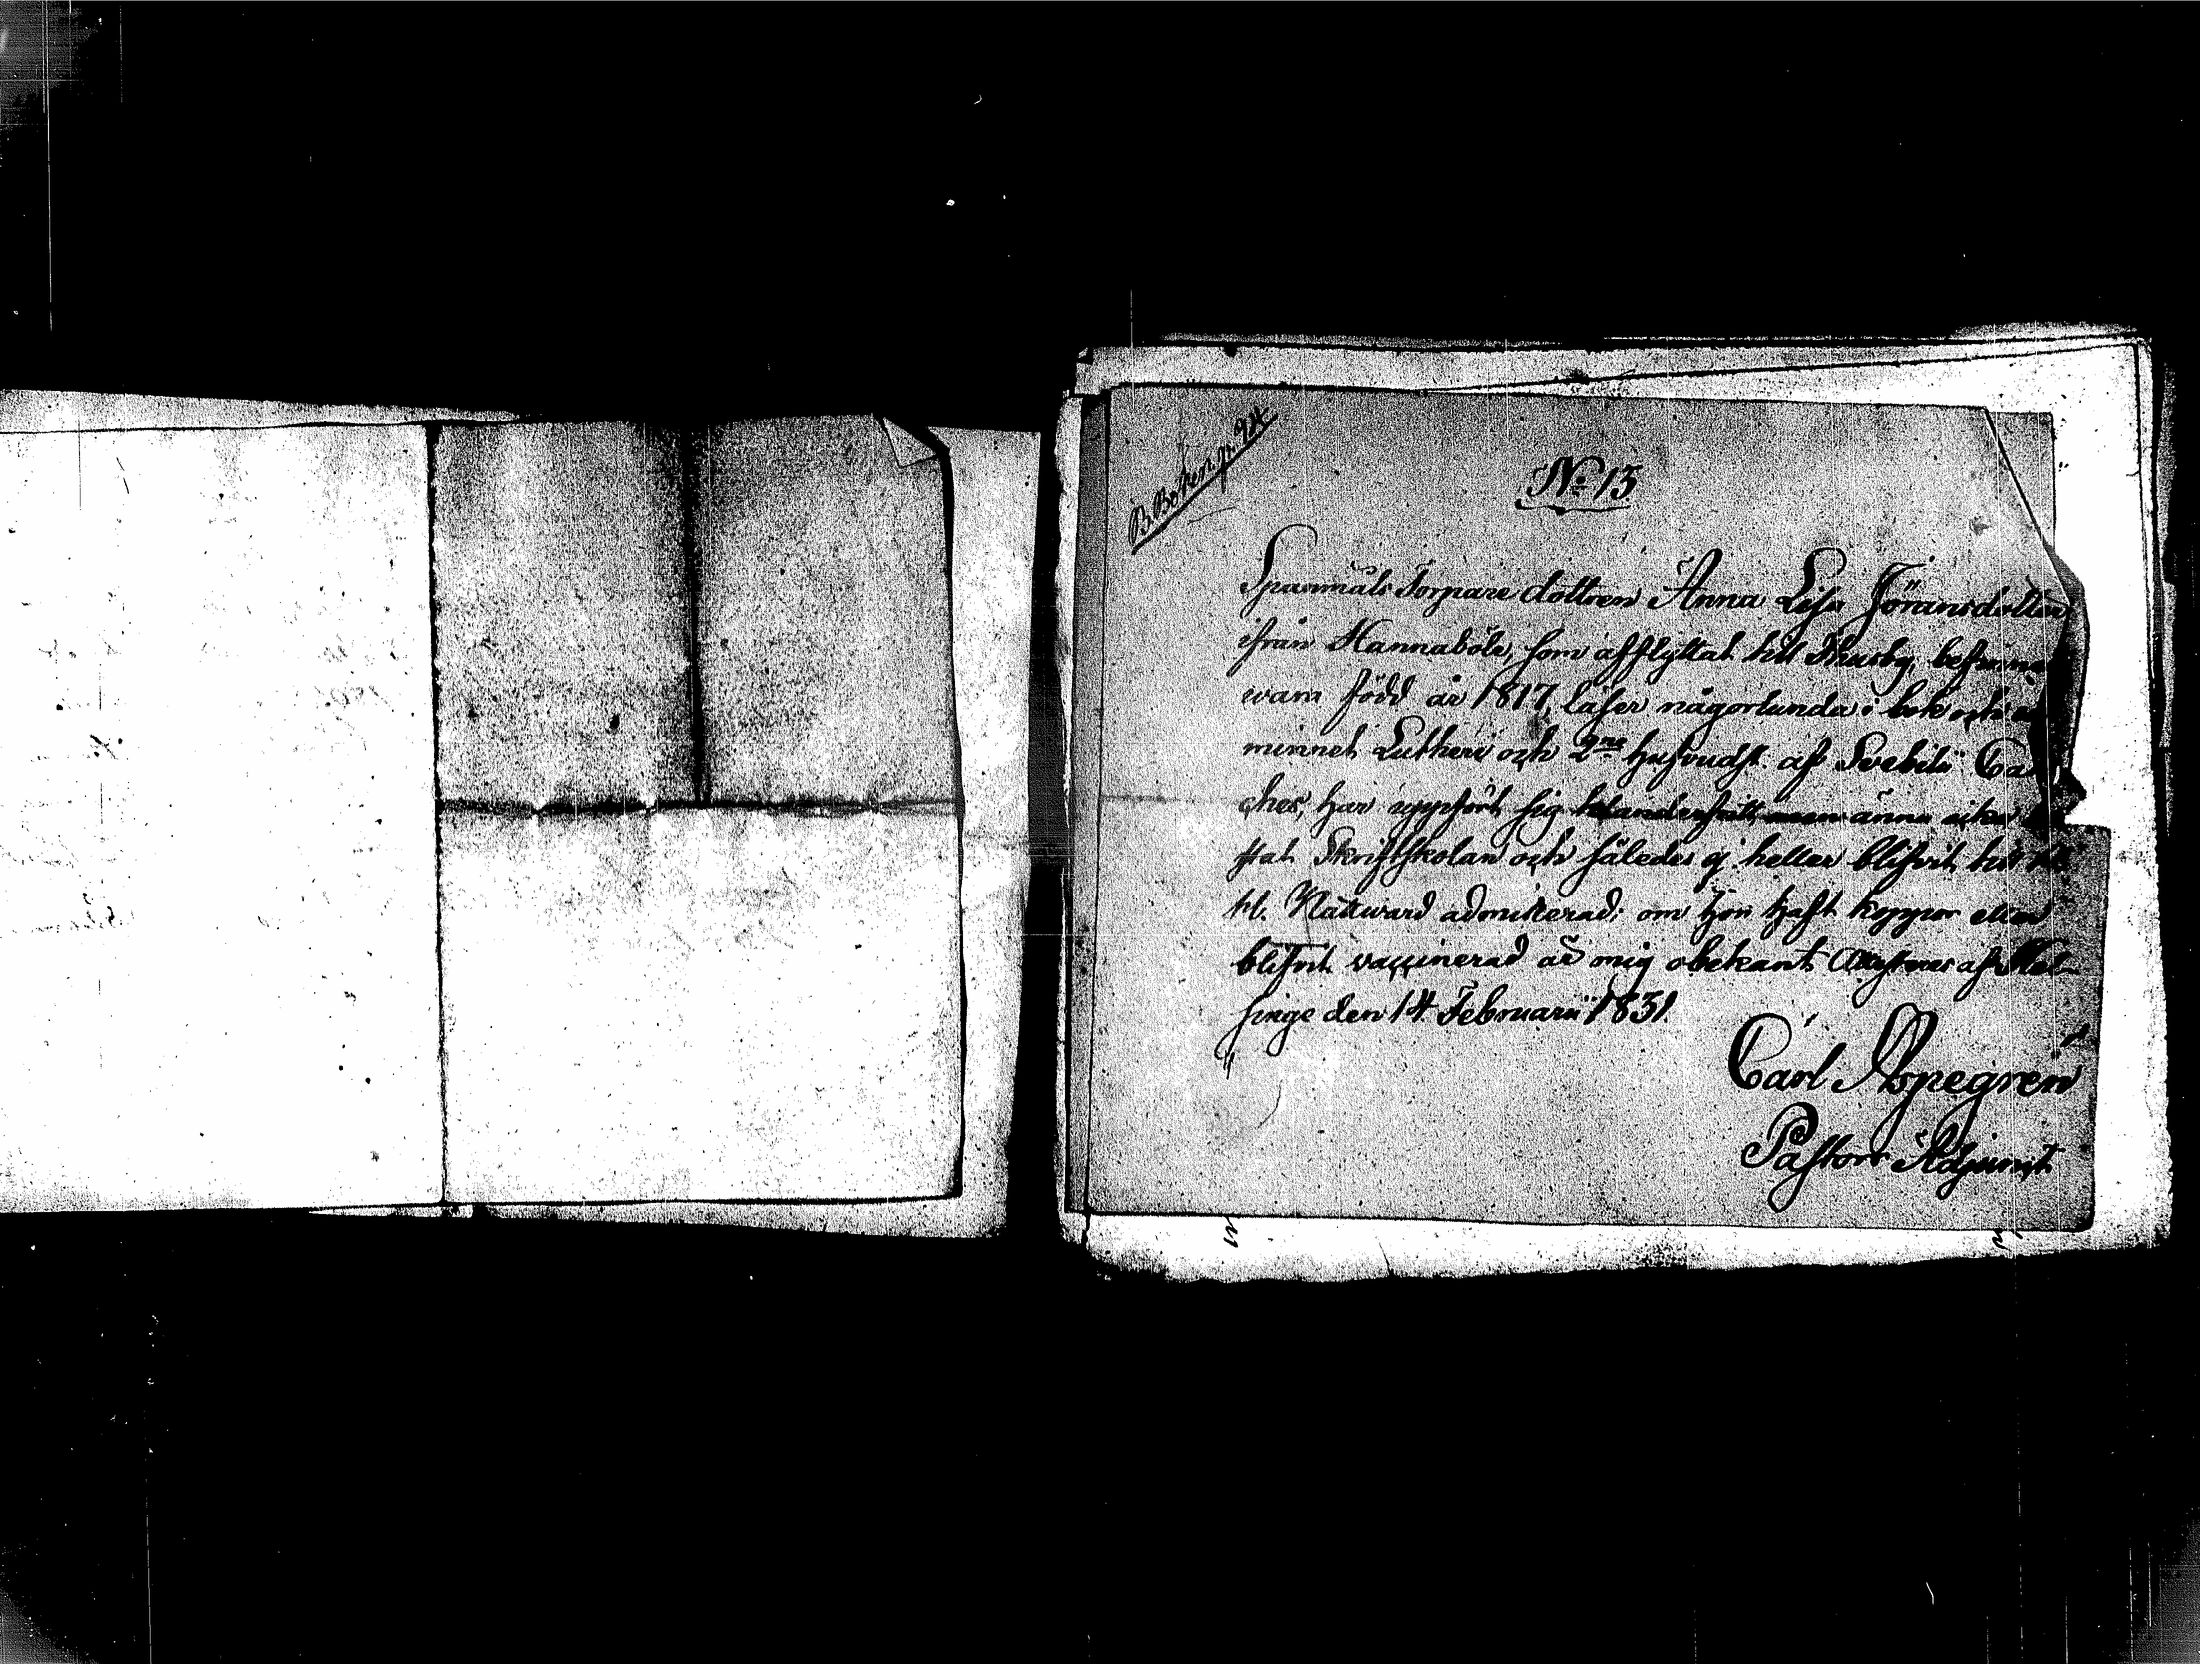 No 13
Spanmåls Torpare dottren Anna Lisa Jöransdotter
ifrån Hannaböle, som afflyttat till Thusby, befinnes
wara född år 1817, läser någorlunda i bok och
minnet Lutheri och 2ne hufvudst. af Svebilii Ca
ches, har uppfört sig klanderfritt, men ännu icke
stat Skriftskolan och således ej heller blifvit
H. Nattward admitterad; om hon haft koppor eller
blifvit vaccinerad är mig obekant. Attesteras af Hel-
singe den 14 Februarii 1831.
Carl Aspegrén
Pastors Adjunct